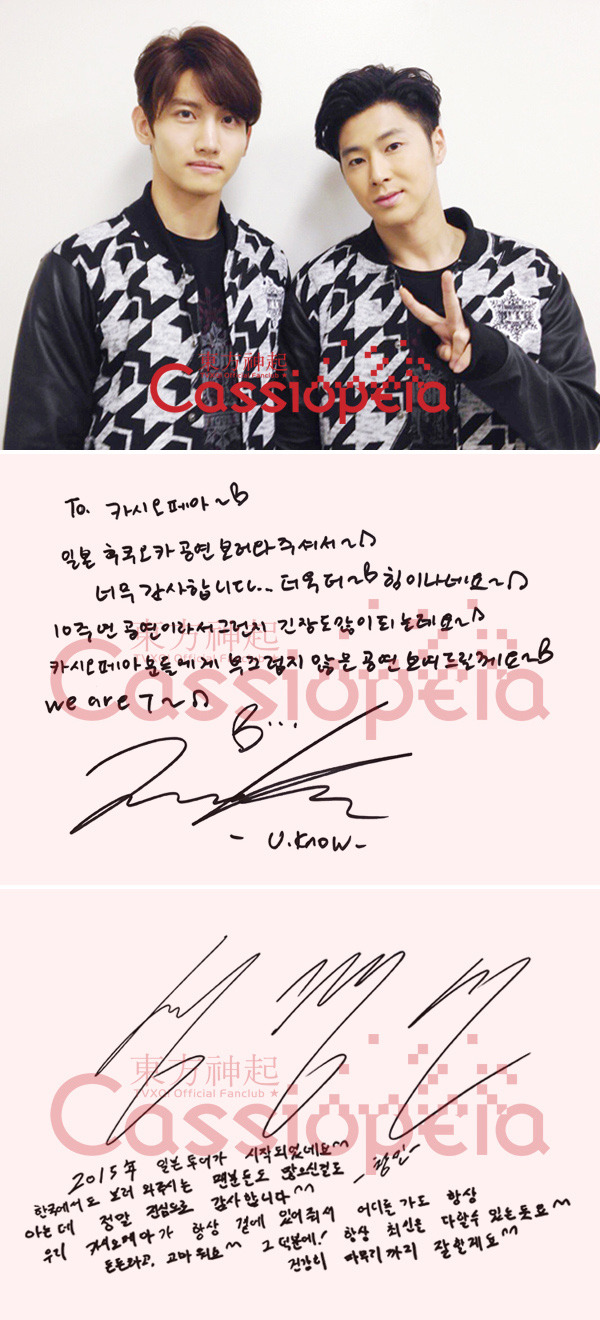 東方神起
TVXQ! Official Fanclub ★
Cassiopeia
To. 카시오페아~B
일본 후쿠오카 공연 보러와 주셔서~♪
너무 감사합니다... 더욱 더~B 힘이나네요~♪
10주년 공연이라서그런지 긴장도많이되는데요~♪
東方神起
카시오페아분들에게 부끄럽지 않은 공연 보여드릴께요~B
we are T~♪
Cassiopeia
B...
- U.Know-
東方神起
TVXQ! Official Fanclub ★
Cassiopeia
2015年 일본 투어가 시작되었네요^^
한국에서도 보러 와주시는 팬분들도 많으신걸로 -창민-
아는데 정말 진심으로 감사합니다^^
우리 카시오페아가 항상 곁에 있어줘서 어디를 가도 항상
든든하고, 고마워요^^ 그 덕분에! 항상 최선을 다할수 있는듯요^^
건강히 마무리까지 잘할게요^^